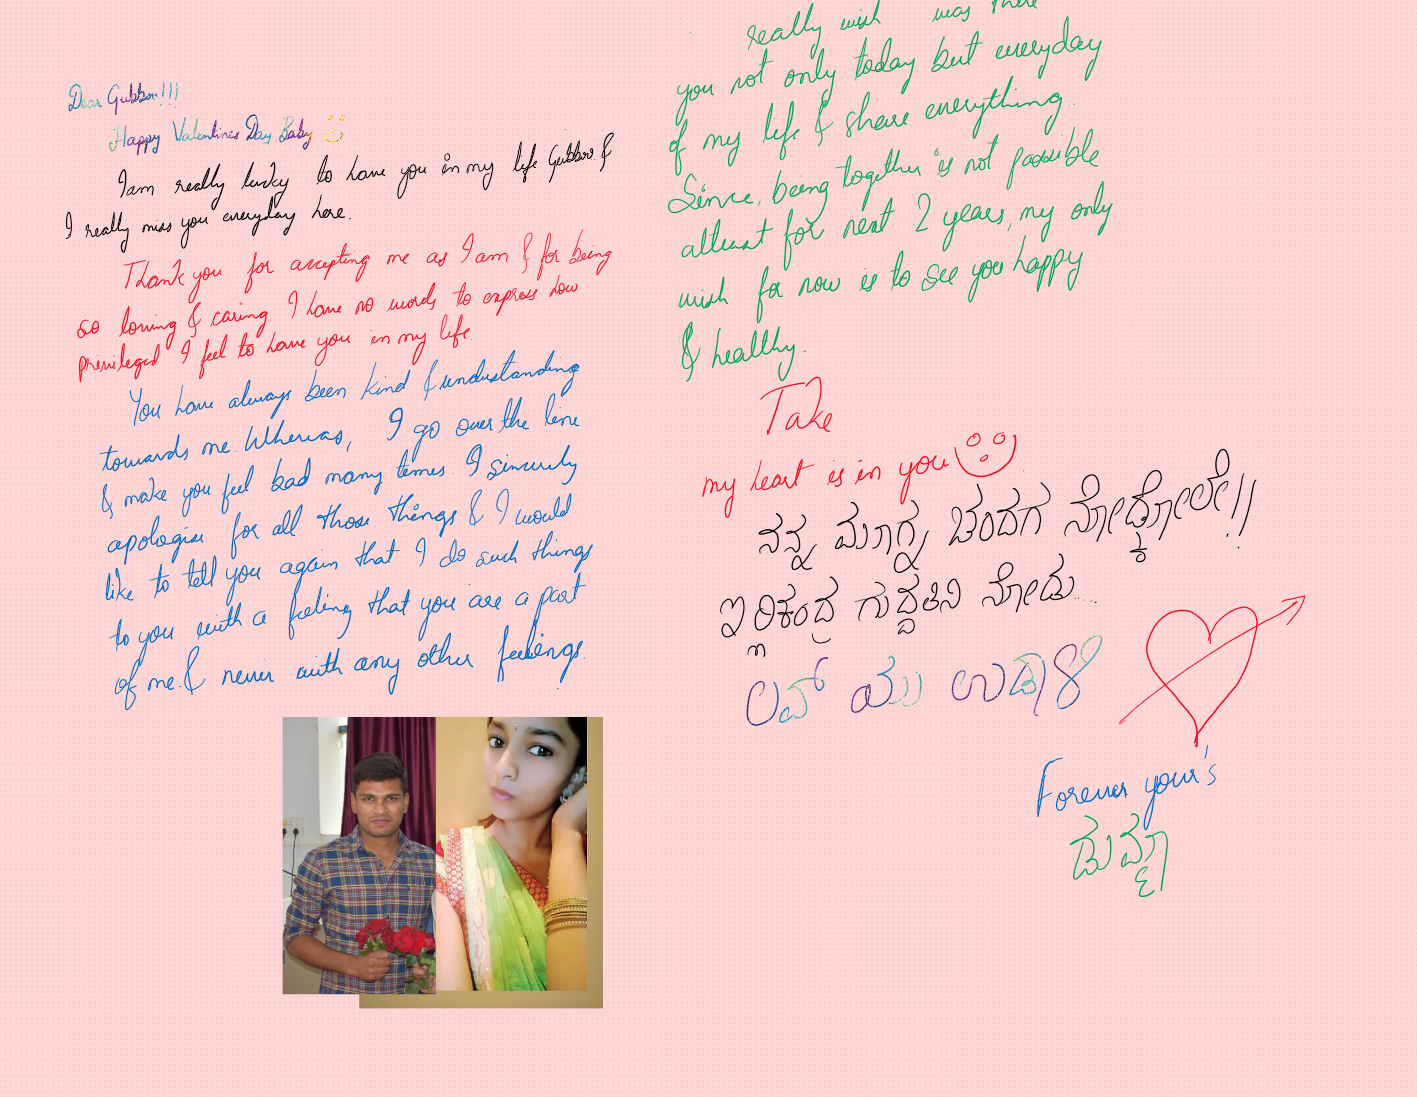 Dear Gubboo!!!
Happy Valentines Day Baby
I am really lucky to have you in my life Gubboo &
I really miss you everyday here.
Thank you for accepting me as I am & for being
so loving & caring I have no words to express how
previleged I feel to have you in my life
You have always been kind & understanding
towards me. Whereas, I go over the line
& make you feel bad many times I sincerely
apologise for all those things & I would
like to tell you again that I do such things
to you with a feeling that you are a part
of me & never with any other feelings.
really wish was there
you not only today but everyday
of my life & share everything.
Since, being together is not possible
atleast for next 2 years, my only
wish for now is to see you happy
& healthy.
Take
my heart is in you
ನನ್ನ ಮಾಗ್ನ ಚಂದಗ ನೋಡ್ಕೋಲೇ!!
ಗುದ್ದತಿನಿ ನೋಡು....
ಲವ್ ಯು ಉಡಾಳಿ
Forever your's
ಡುಮ್ಮಾ